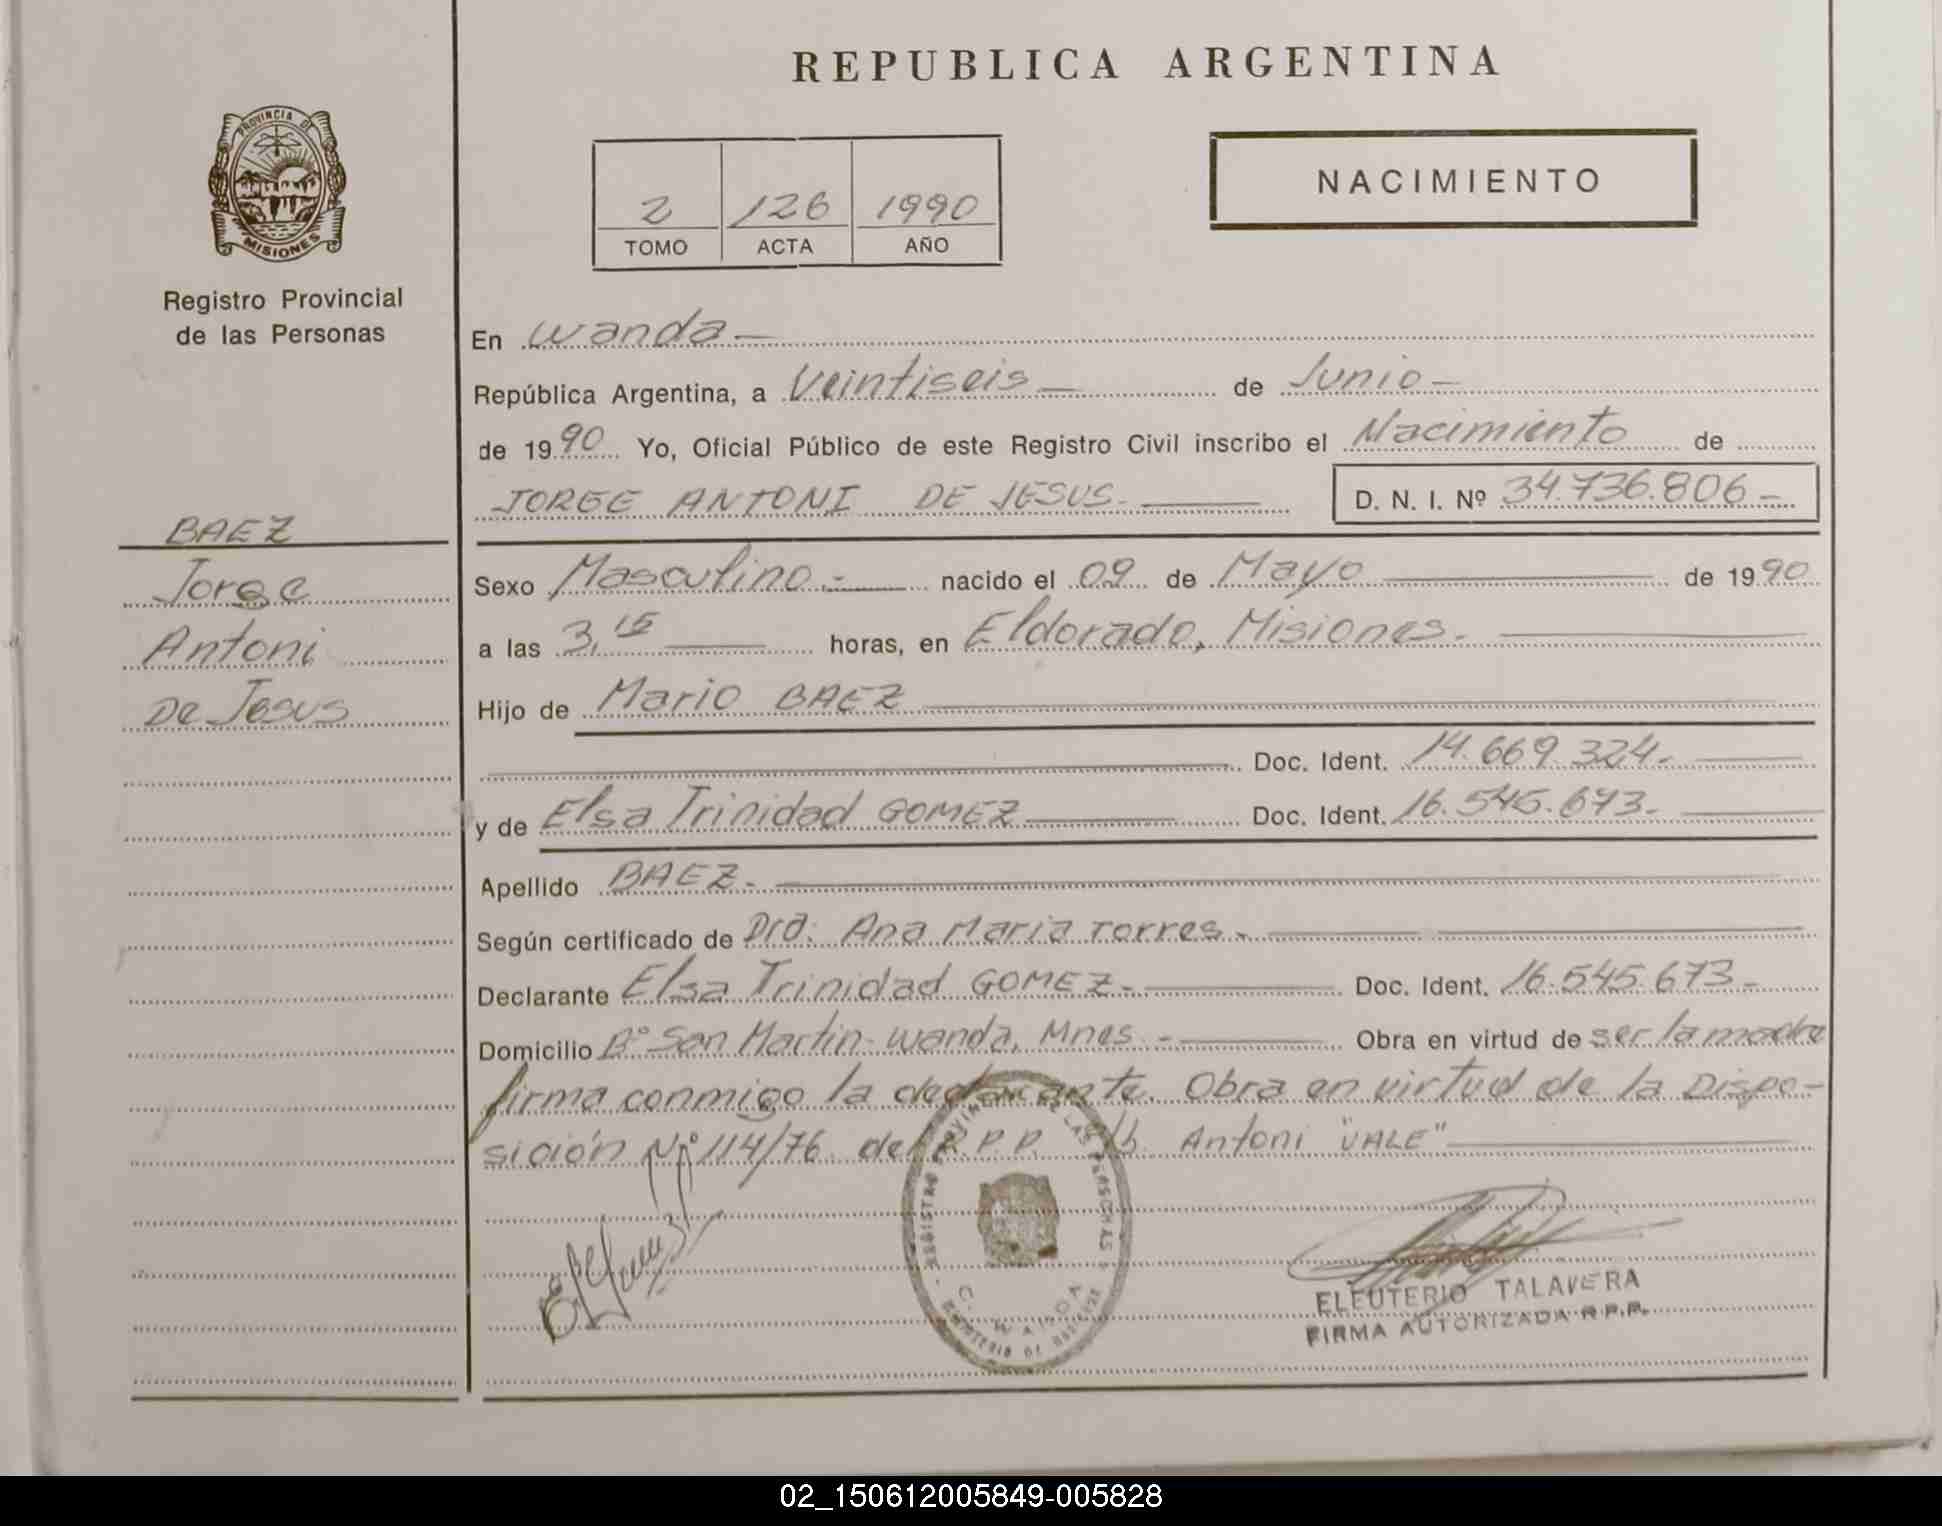 REPUBLICA ARGENTINA
PROVINCIA DE
MISIONES
Registro Provincial
de las Personas
2 126 1990
TOMO ACTA AÑO
NACIMIENTO
En Wanda —
República Argentina, a Veintiseis — de Junio —
de 1990 Yo, Oficial Público de este Registro Civil inscribo el Nacimiento de
JORGE ANTONI DE JESUS. — D. N. I. Nº 34.736.806 —
BAEZ
Jorge
Antoni
De Jesus
Sexo Masculino.- nacido el 09 de Mayo — de 1990
a las 3,15 — horas, en Eldorado, Misiones. —
Hijo de Mario BAEZ —
Doc. Ident. 14.669.324. —
y de Elsa Trinidad GOMEZ — Doc. Ident. 16.545.673. —
Apellido BAEZ. —
Según certificado de Dra. Ana Maria Torres. —
Declarante Elsa Trinidad GOMEZ. — Doc. Ident. 16.545.673 —
Domicilio Bº San Martin- Wanda, Mnes. — Obra en virtud de ser la madre
firma conmigo la declarante. Obra en virtud de la Dispo-
sición Nº 114/76 del R.P.P. Antoni "VALE" —
REGISTRO PROVINCIAL DE LAS PERSONAS
WANDA
MINISTERIO DE
ELEUTERIO TALAVERA
FIRMA AUTORIZADA R.P.P.
02_150612005849-005828